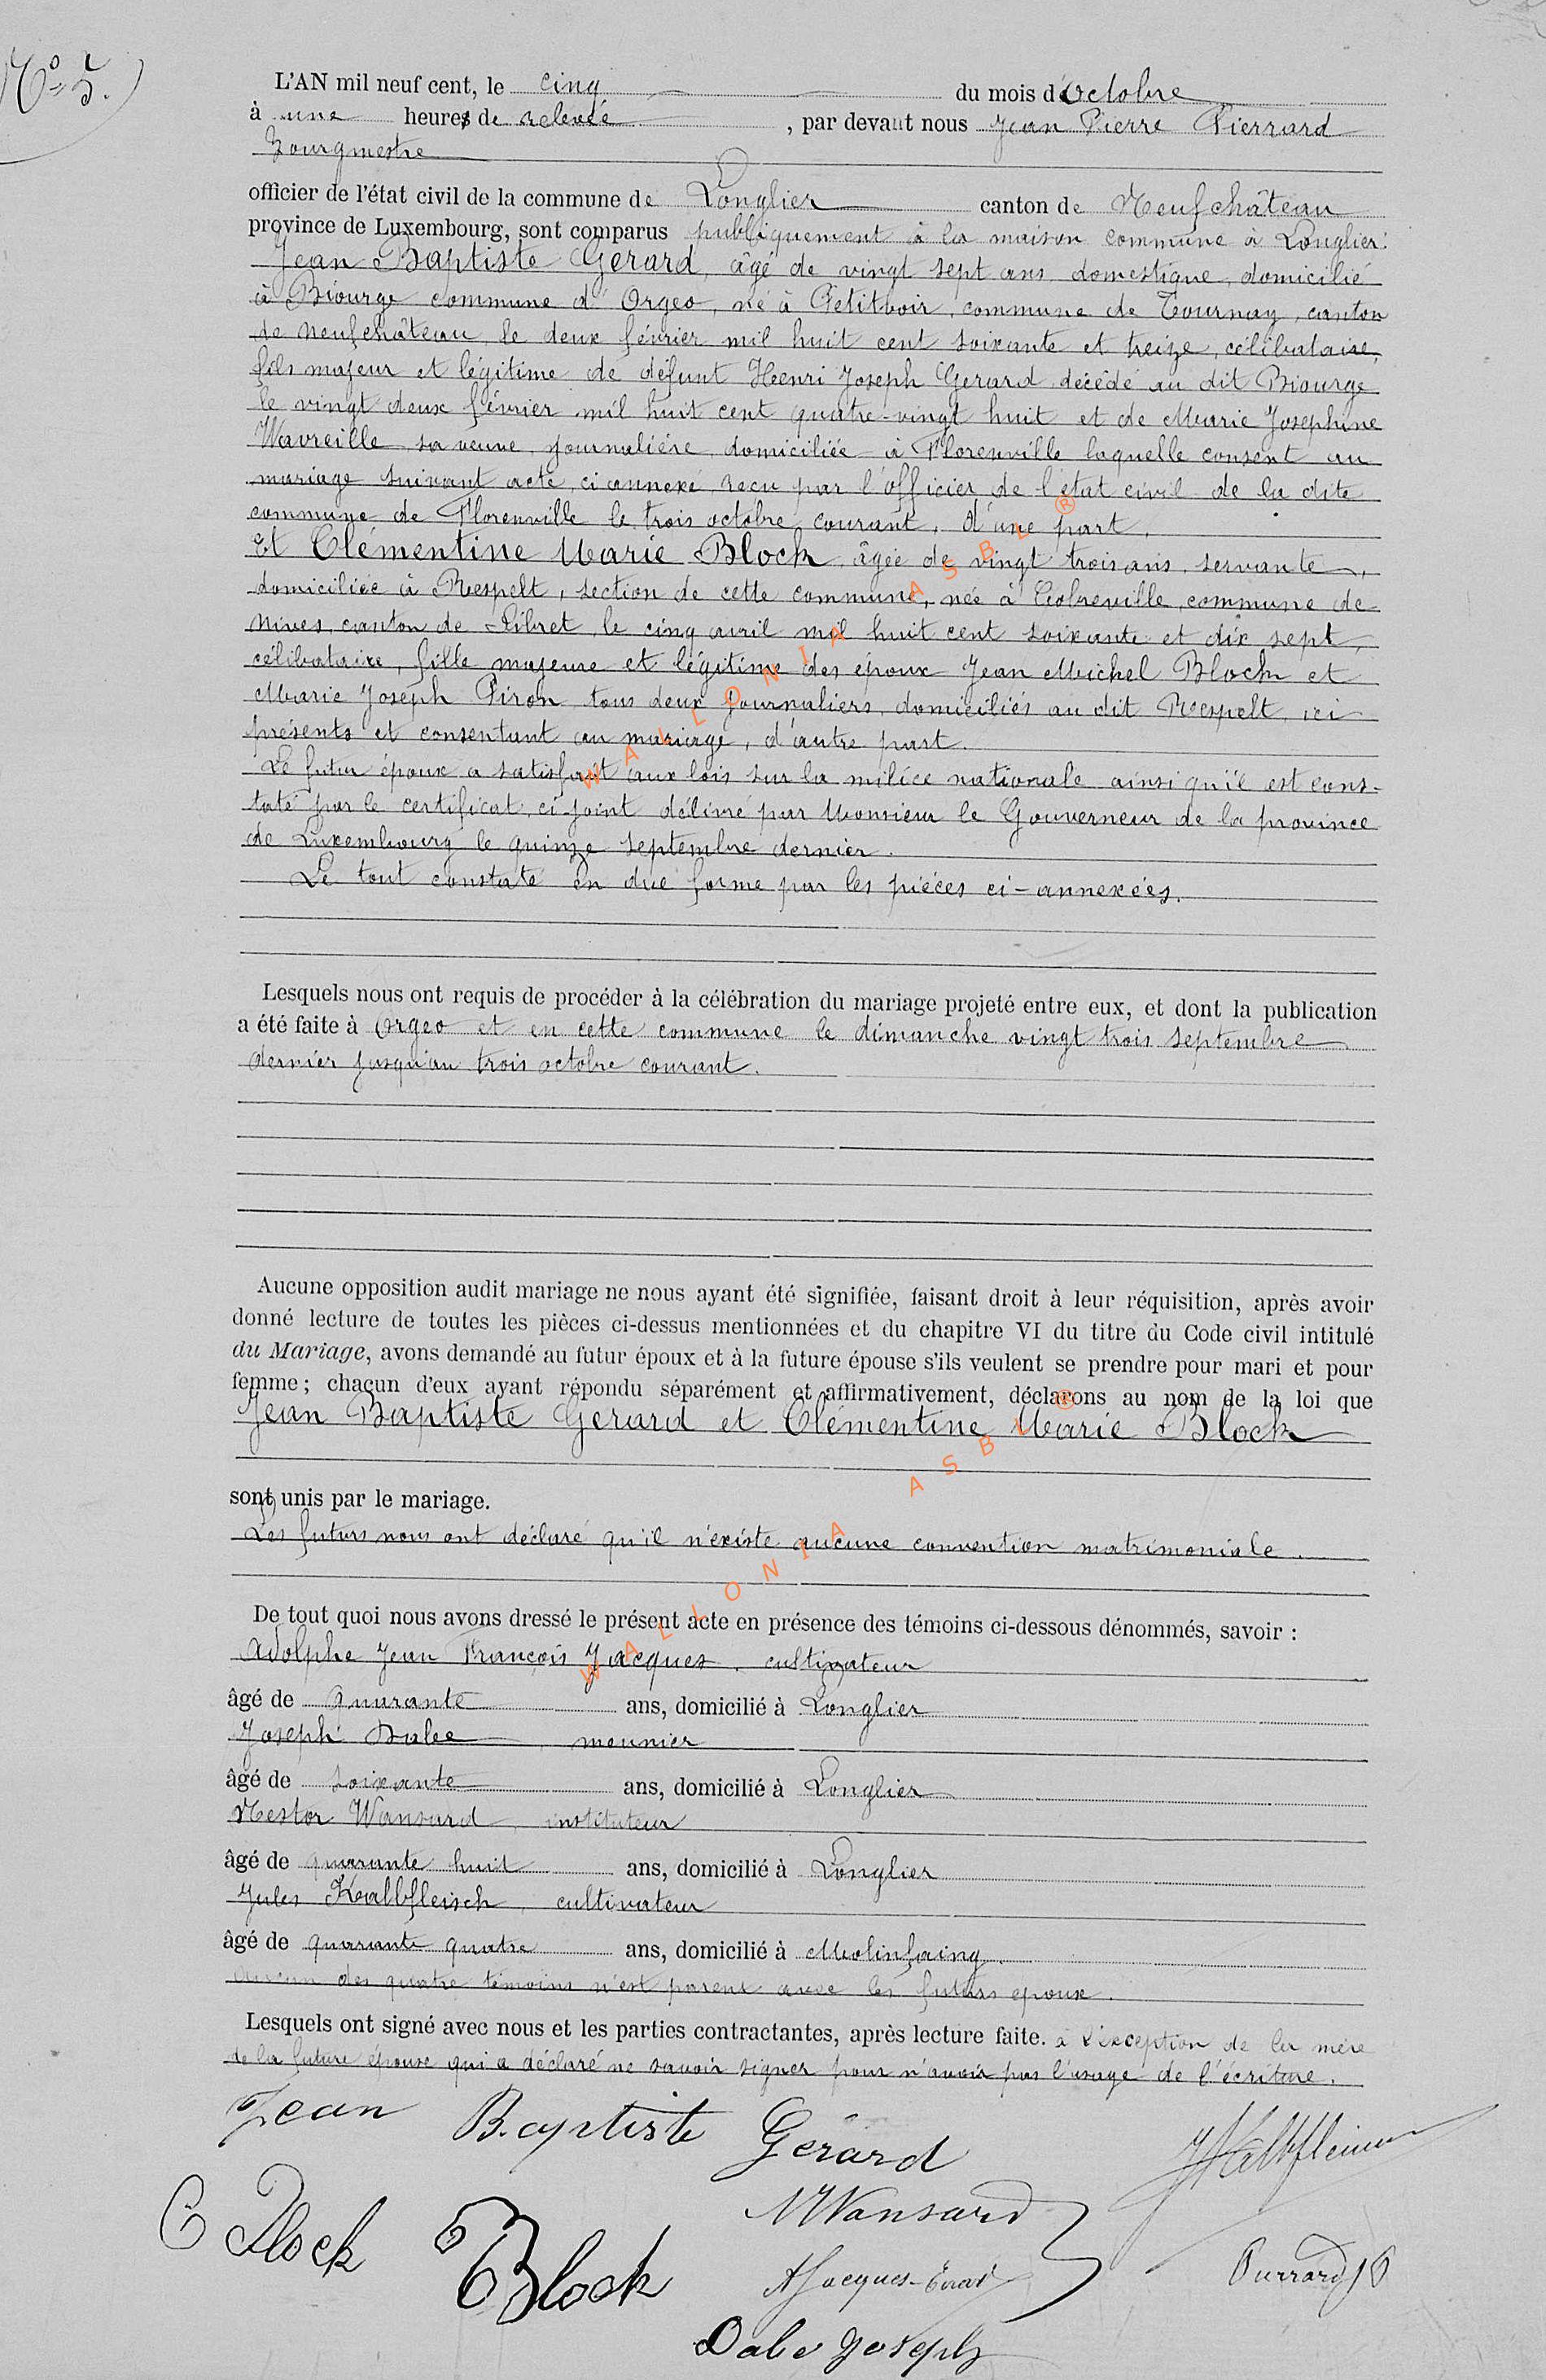 N° 5.
L'AN mil neuf cent, le cinq du mois d'Octobre
à une heures de relevée, par devant nous Jean Pierre Pierrard
Bourgmestre
officier de l'état civil de la commune de Longlier canton de Neufchâteau
province de Luxembourg, sont comparus publiquement à la maison commune à Longlier:
Jean Baptiste Gerard, âgé de vingt sept ans, domestique, domicilié
à Biourge commune d'Orgeo, né à Petitvoir, commune de Tournay, canton
de Neufchâteau, le deux février mil huit cent soixante et treize, célibataire,
fils majeur et légitime de défunt Henri Joseph Gerard, décédé au dit Biourge
le vingt deux février mil huit cent quatre-vingt huit et de Marie Josephine
Wavreille sa veuve, journalière, domiciliée à Florenville laquelle consent au
mariage suivant acte, ci annexé, reçu par l'officier de l'état civil de la dite
commune de Florenville le trois octobre courant, d'une part,
Et Clémentine Marie Block, âgée de vingt trois ans, servante,
domiciliée à Respelt, section de cette commune, née à Cobreville, commune de
Nives, canton de Sibret, le cinq avril mil huit cent soixante et dix sept,
célibataire, fille majeure et légitime des époux Jean Michel Block et
Marie Joseph Piron, tous deux journaliers, domiciliés au dit Respelt, ici
présents et consentant au mariage, d'autre part.
Le futur époux a satisfait aux lois sur la milice nationale ainsi qu'il est cons-
taté par le certificat, ci-joint délivré par Monsieur le Gouverneur de la province
de Luxembourg le quinze septembre dernier.
Le tout constaté en due forme par les pièces ci-annexées.
Lesquels nous ont requis de procéder à la célébration du mariage projeté entre eux, et dont la publication
a été faite à Orgeo et en cette commune le dimanche vingt trois septembre
dernier jusqu'au trois octobre courant.
Aucune opposition audit mariage ne nous ayant été signifiée, faisant droit à leur réquisition, après avoir
donné lecture de toutes les pièces ci-dessus mentionnées et du chapitre VI du titre du Code civil intitulé
du Mariage, avons demandé au futur époux et à la future épouse s'ils veulent se prendre pour mari et pour
femme; chacun d'eux ayant répondu séparément et affirmativement, déclarons au nom de la loi que
Jean Baptiste Gerard et Clémentine Marie Block
sont unis par le mariage.
Les futurs nous ont déclaré qu'il n'existe aucune convention matrimoniale.
De tout quoi nous avons dressé le présent acte en présence des témoins ci-dessous dénommés, savoir :
Adolphe Jean François Jacques, cultivateur
âgé de Quarante ans, domicilié à Longlier
Joseph Dabe, meunier
âgé de soixante ans, domicilié à Longlier
Nestor Wansard, instituteur
âgé de quarante huit ans, domicilié à Longlier
Jules Kalbfleisch, cultivateur
âgé de quarante quatre ans, domicilié à Molinfaing.
Aucun des quatre témoins n'est parent avec les futurs époux.
Lesquels ont signé avec nous et les parties contractantes, après lecture faite. à l'exception de la mère
de la future épouse qui a déclaré ne savoir signer pour n'avoir pas l'usage de l'écriture.
Jean Baptiste Gérard
C Block Block NWansard
AJacques-
Dabe Joseph
WALLONIA ASBL ®
WALLONIA ASBL ®